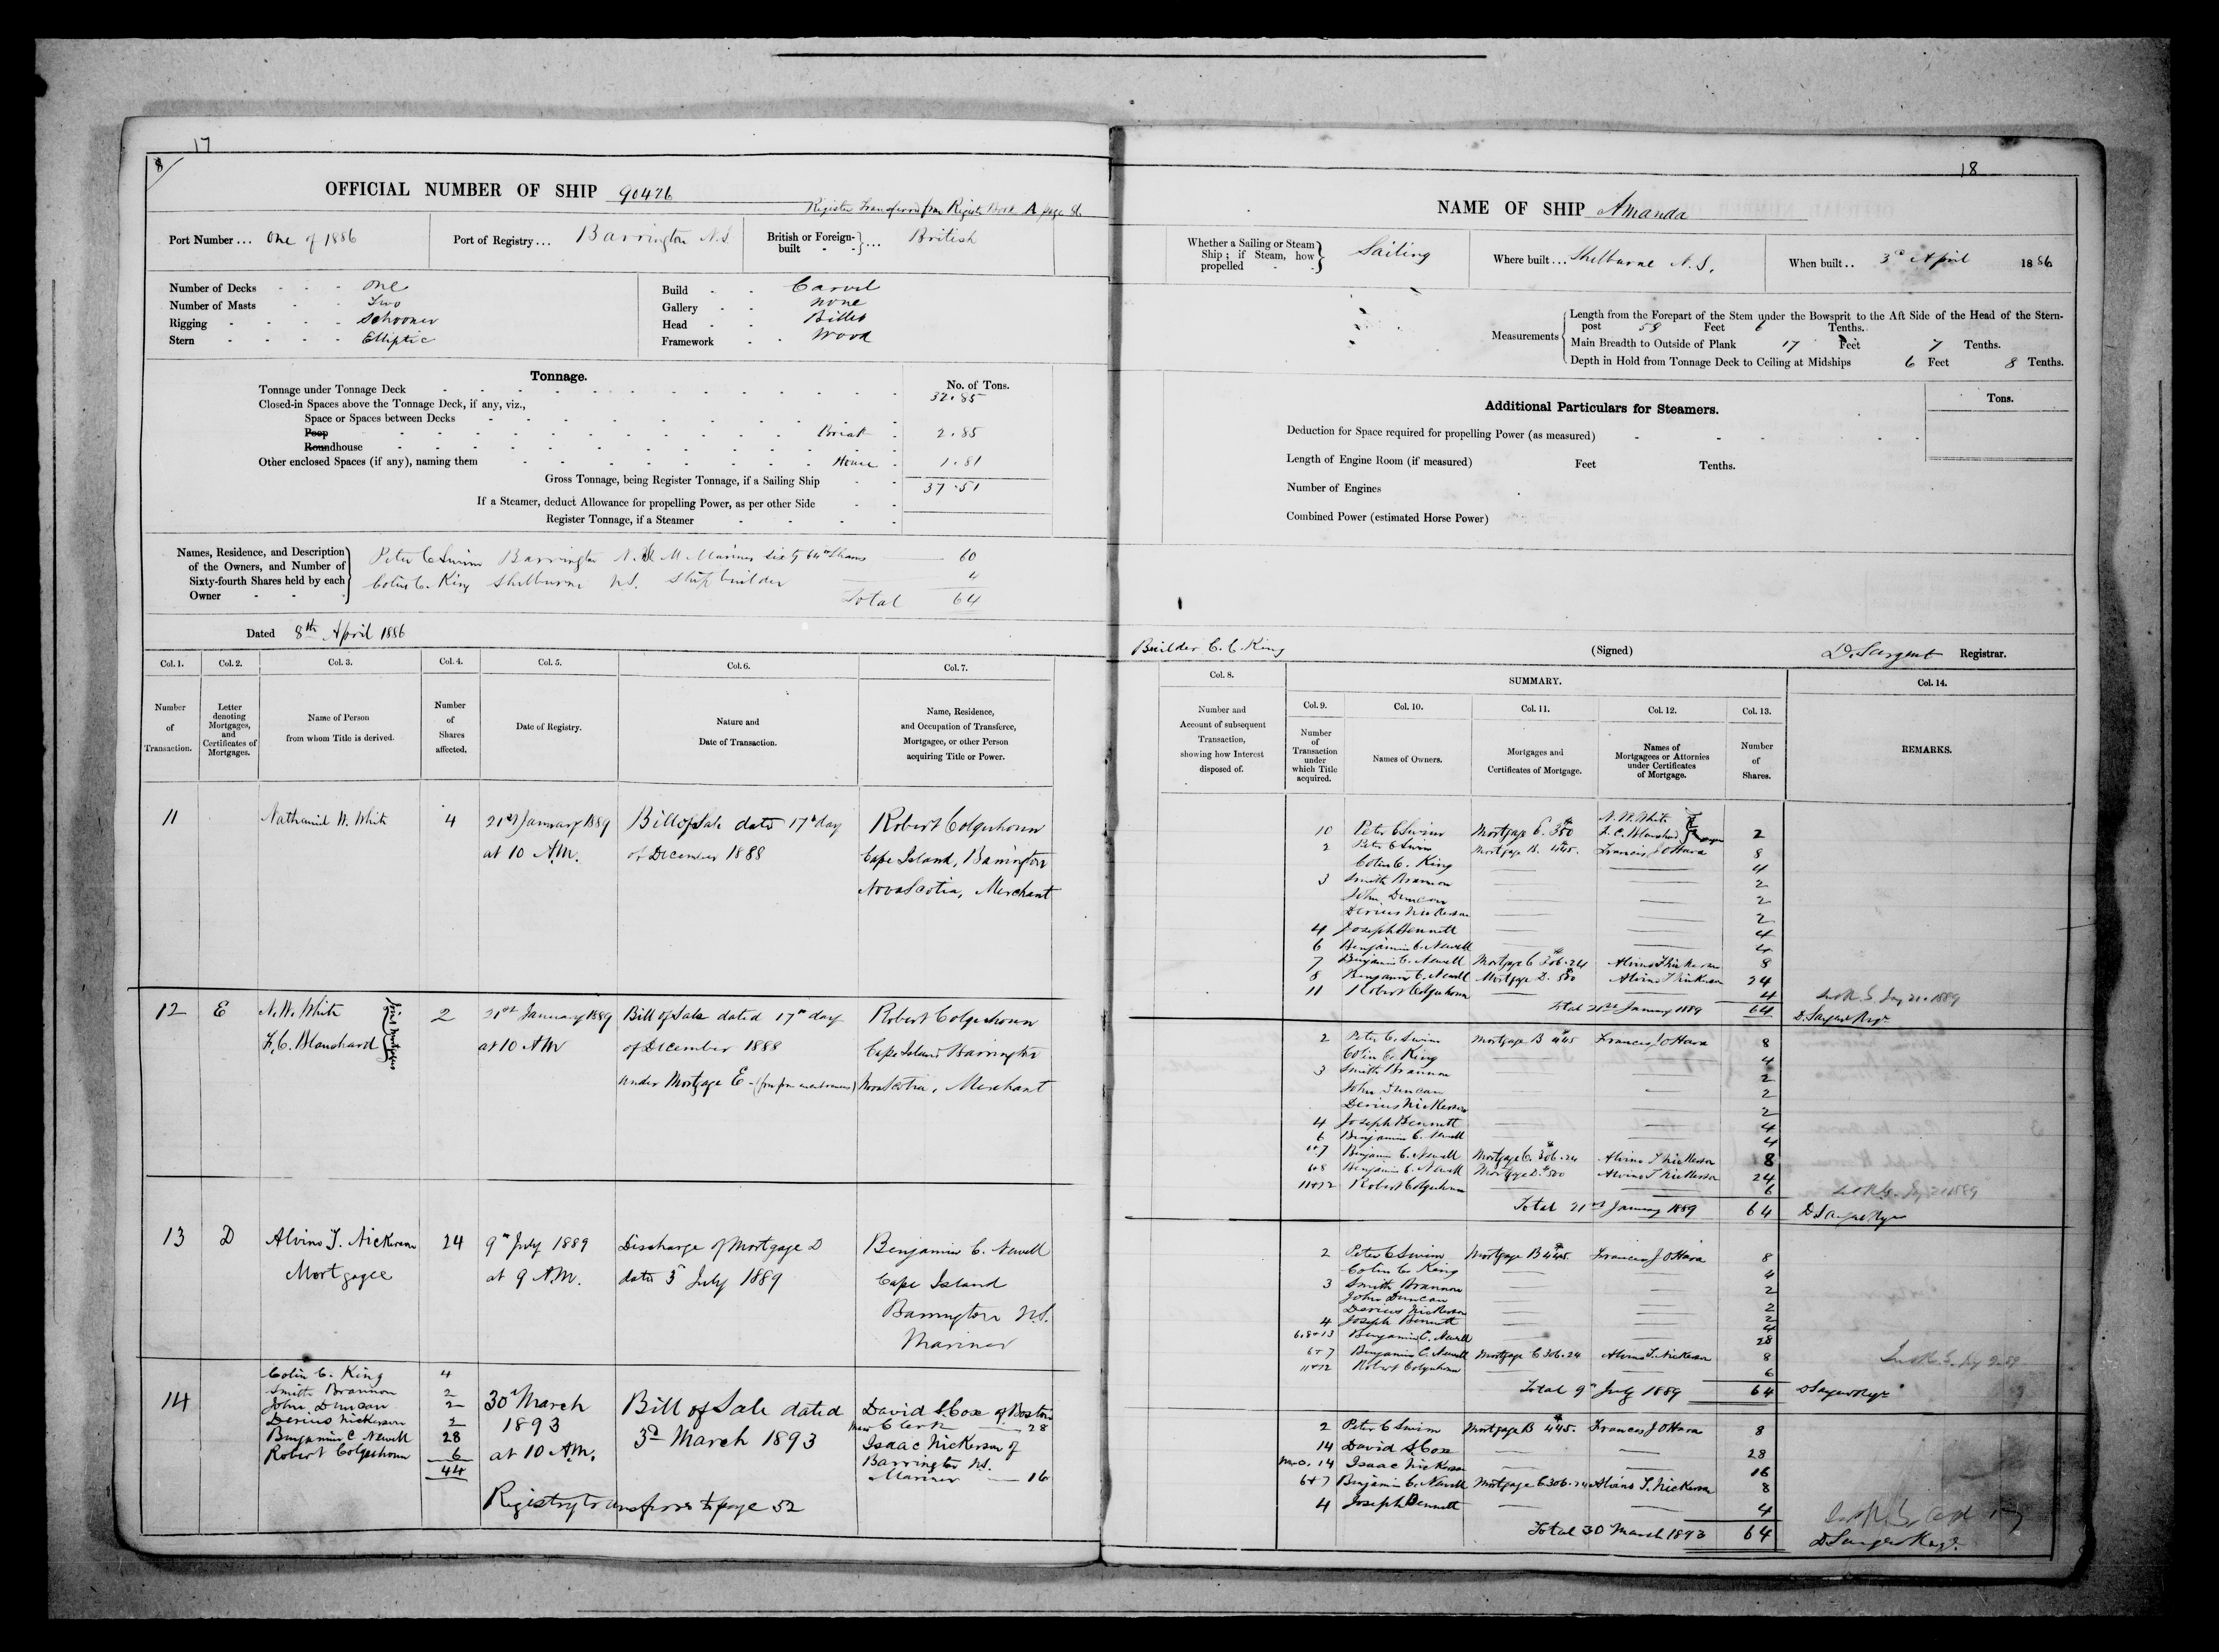 17
8/
OFFICIAL NUMBER OF SHIP 90476
Register Transferred from Register Book A page
Port Number... One of 1886
Port of Registry... Barrington N.S.
British or Foreign-built ... British
Number of Decks - - - One
Number of Masts - - Two
Rigging - - - - Schooner
Stern - - - - Elliptic
Build - - Carvel
Gallery - - None
Head - - Billet
Framework - - Wood
Tonnage.
No. of Tons.
Tonnage under Tonnage Deck 32.85
Closed-in Spaces above the Tonnage Deck, if any, viz.,
Space or Spaces between Decks
Poop Break 2.85
Roundhouse
Other enclosed Spaces (if any), naming them House 1.81
Gross Tonnage, being Register Tonnage, if a Sailing Ship 37.51
If a Steamer, deduct Allowance for propelling Power, as per other Side
Register Tonnage, if a Steamer
Names, Residence, and Description of the Owners, and Number of Sixty-fourth Shares held by each Owner
Peter C Swim Barrington N.S. M. Mariner sixty 64th Shares 60
Colin C. King Shelburne N.S. Shipbuilder 4
Total 64
Dated 8th April 1886
Col. 1. Col. 2. Col. 3. Col. 4. Col. 5. Col. 6. Col. 7.
Number of Transaction.
Letter denoting Mortgages, and Certificates of Mortgages.
Name of Person from whom Title is derived.
Number of Shares affected.
Date of Registry.
Nature and Date of Transaction.
Name, Residence, and Occupation of Transferee, Mortgagee, or other Person acquiring Title or Power.
11 Nathaniel W. White 4 21st January 1889 Bill of Sale dated 17th day Robert Colquhoun
at 10 A.M. of December 1888 Cape Island, Barrington
Nova Scotia, Merchant
12 E N. W. White 2 21st January 1889 Bill of Sale dated 17th day Robert Colquhoun
F. C. Blanchard Joint Mortgagees at 10 AM of December 1888 Cape Island Barrington
under Mortgage E Nova Scotia, Merchant
13 D Alvins T. Nickerson 24 9th July 1889 Discharge of Mortgage D Benjamin C. Newell
Mortgagee at 9 A.M. dated 3d July 1889 Cape Island
Barrington N.S.
Mariner
14
Colin C. King 4
Smith Brannon 2
John Duncan 2
Derius Nickerson 2
Benjamin C Newell 28
Robert Colquhoun 6
44
30th March 1893 at 10 A.M.
Bill of Sale dated 3d March 1893
David S. Cox of Boston
Mass Clerk 28
Isaac Nickerson of
Barrington N.S.
Mariner 16
Registry transferred to page 52
18
NAME OF SHIP Amanda
Whether a Sailing or Steam Ship; if Steam, how propelled Sailing
Where built... Shelburne N.S.
When built.. 3d April 1886
Measurements
Length from the Forepart of the Stem under the Bowsprit to the Aft Side of the Head of the Stern-
post 58 Feet 6 Tenths.
Main Breadth to Outside of Plank 17 Feet 7 Tenths.
Depth in Hold from Tonnage Deck to Ceiling at Midships 6 Feet 8 Tenths.
Additional Particulars for Steamers.
Tons.
Deduction for Space required for propelling Power (as measured)
Length of Engine Room (if measured) Feet Tenths.
Number of Engines
Combined Power (estimated Horse Power)
Builder C. C. King
(Signed) D. Sargent Registrar.
Col. 8.
SUMMARY.
Col. 14.
Col. 9. Col. 10. Col. 11. Col. 12. Col. 13.
Number and Account of subsequent Transaction, showing how Interest disposed of.
Number of Transaction under which Title acquired.
Names of Owners.
Mortgages and Certificates of Mortgage.
Names of Mortgagees or Attornies under Certificates of Mortgage.
Number of Shares.
REMARKS.
N. W. White
10 Peter C Swim Mortgage E. 350 F. C. Blanchard 2
2 Peter C Swim Mortgage B. 445. Francis J O'Hara 8
Colin C. King 4
3 Smith Brannon 2
John Duncan 2
Derius Nickerson 2
4 Joseph Bennett 4
6 Benjamin C. Newell 4
7 Benjamin C. Newell Mortgage C 306.24 Alvins T Nickerson 8
8 Benjamin C. Newell Mortgage D. 500 Alvins T Nickerson 24
11 Robert Colquhoun 4
Total 21st January 1889 64
D. Sargent Regr
2 Peter C. Swim Mortgage B 445 Francis J O'Hara 8
Colin C. King 4
3 Smith Brannon 2
John Duncan 2
Derius Nickerson 2
4 Joseph Bennett 4
6 Benjamin C. Newell 4
6+7 Benjamin C. Newell Mortgage C. 306.24 Alvins T Nickerson 8
6+8 Benjamin C. Newell Mortgage D. 500 Alvins T Nickerson 24
11+12 Robert Colquhoun 6
Total 21st January 1889 64 D Sargent Regr
2 Peter C Swim Mortgage B 445. Francis J O'Hara 8
Colin C. King 4
3 Smith Brannon 2
John Duncan 2
Derius Nickerson 2
4 Joseph Bennett 4
6,8+13 Benjamin C. Newell 28
6+7 Benjamin C. Newell Mortgage C 306.24 Alvins T. Nickerson 8
11+12 Robert Colquhoun 6
Total 9th July 1889 64 D Sargent Regr
2 Peter C Swim Mortgage B 445. Francis J O'Hara 8
14 David S Cox 28
14 Isaac Nickerson 16
6+7 Benjamin C. Newell Mortgage C 306.24 Alvins T. Nickerson 8
4 Joseph Bennett 4
Total 30 March 1893 64
D Sargent Regr.